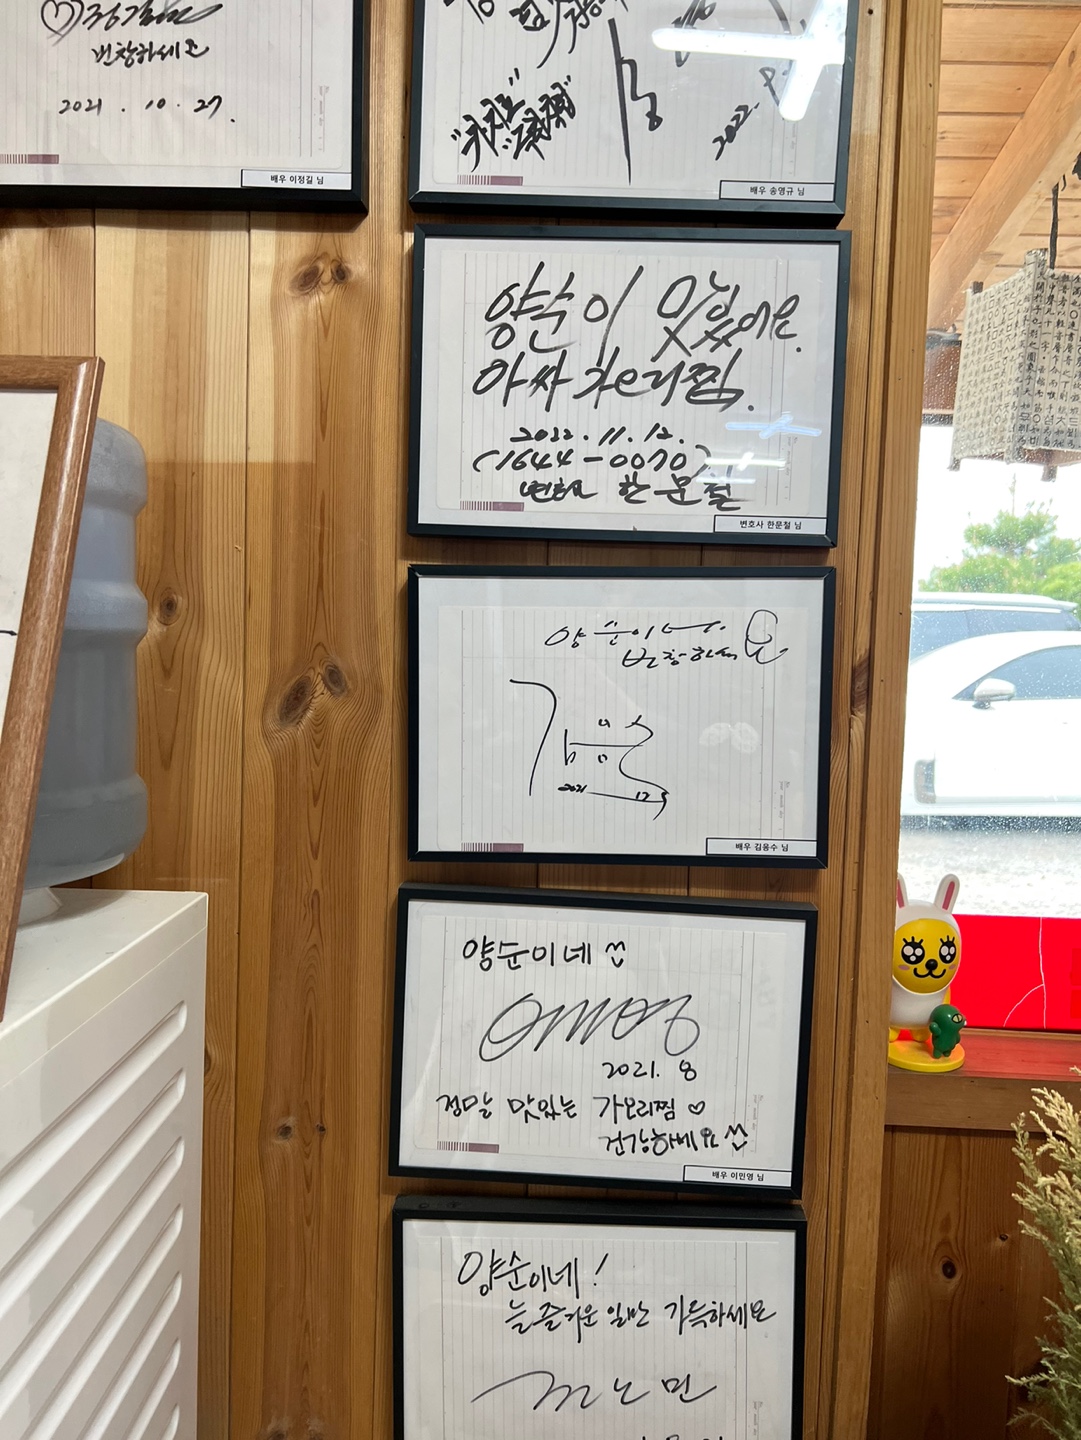 번창하세요
2021.10.27.
배우 이정길 님
2022.
배우 송영규 님
양순이 맛있어요.
아싸 가오리찜.
2022.11.12.
(1644-0070)
변호사 한문철
변호사 한문철 님
양순이네
번창하세요
2021 12
배우 김응수 님
양순이네
2021. 8
정말 맛있는 가오리찜 ♡
건강하세요
배우 이민영 님
양순이네!
늘 즐거운 일만 가득하세요